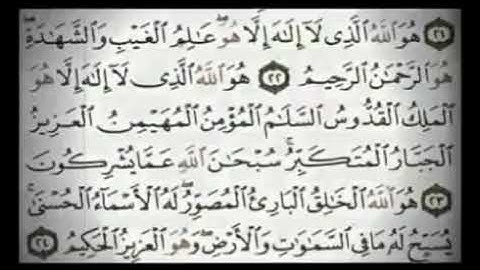 ٢١ هُوَ اللَّهُ الَّذِي لَا إِلَٰهَ إِلَّا هُوَ ۖ عَالِمُ الْغَيْبِ وَالشَّهَادَةِ ۖ
هُوَ الرَّحْمَٰنُ الرَّحِيمُ ٢٢ هُوَ اللَّهُ الَّذِي لَا إِلَٰهَ إِلَّا هُوَ
الْمَلِكُ الْقُدُّوسُ السَّلَامُ الْمُؤْمِنُ الْمُهَيْمِنُ الْعَزِيزُ
الْجَبَّارُ الْمُتَكَبِّرُ ۚ سُبْحَانَ اللَّهِ عَمَّا يُشْرِكُونَ
٢٣ هُوَ اللَّهُ الْخَالِقُ الْبَارِئُ الْمُصَوِّرُ ۖ لَهُ الْأَسْمَاءُ الْحُسْنَىٰ ۚ
يُسَبِّحُ لَهُ مَا فِي السَّمَاوَاتِ وَالْأَرْضِ ۖ وَهُوَ الْعَزِيزُ الْحَكِيمُ ٢٤